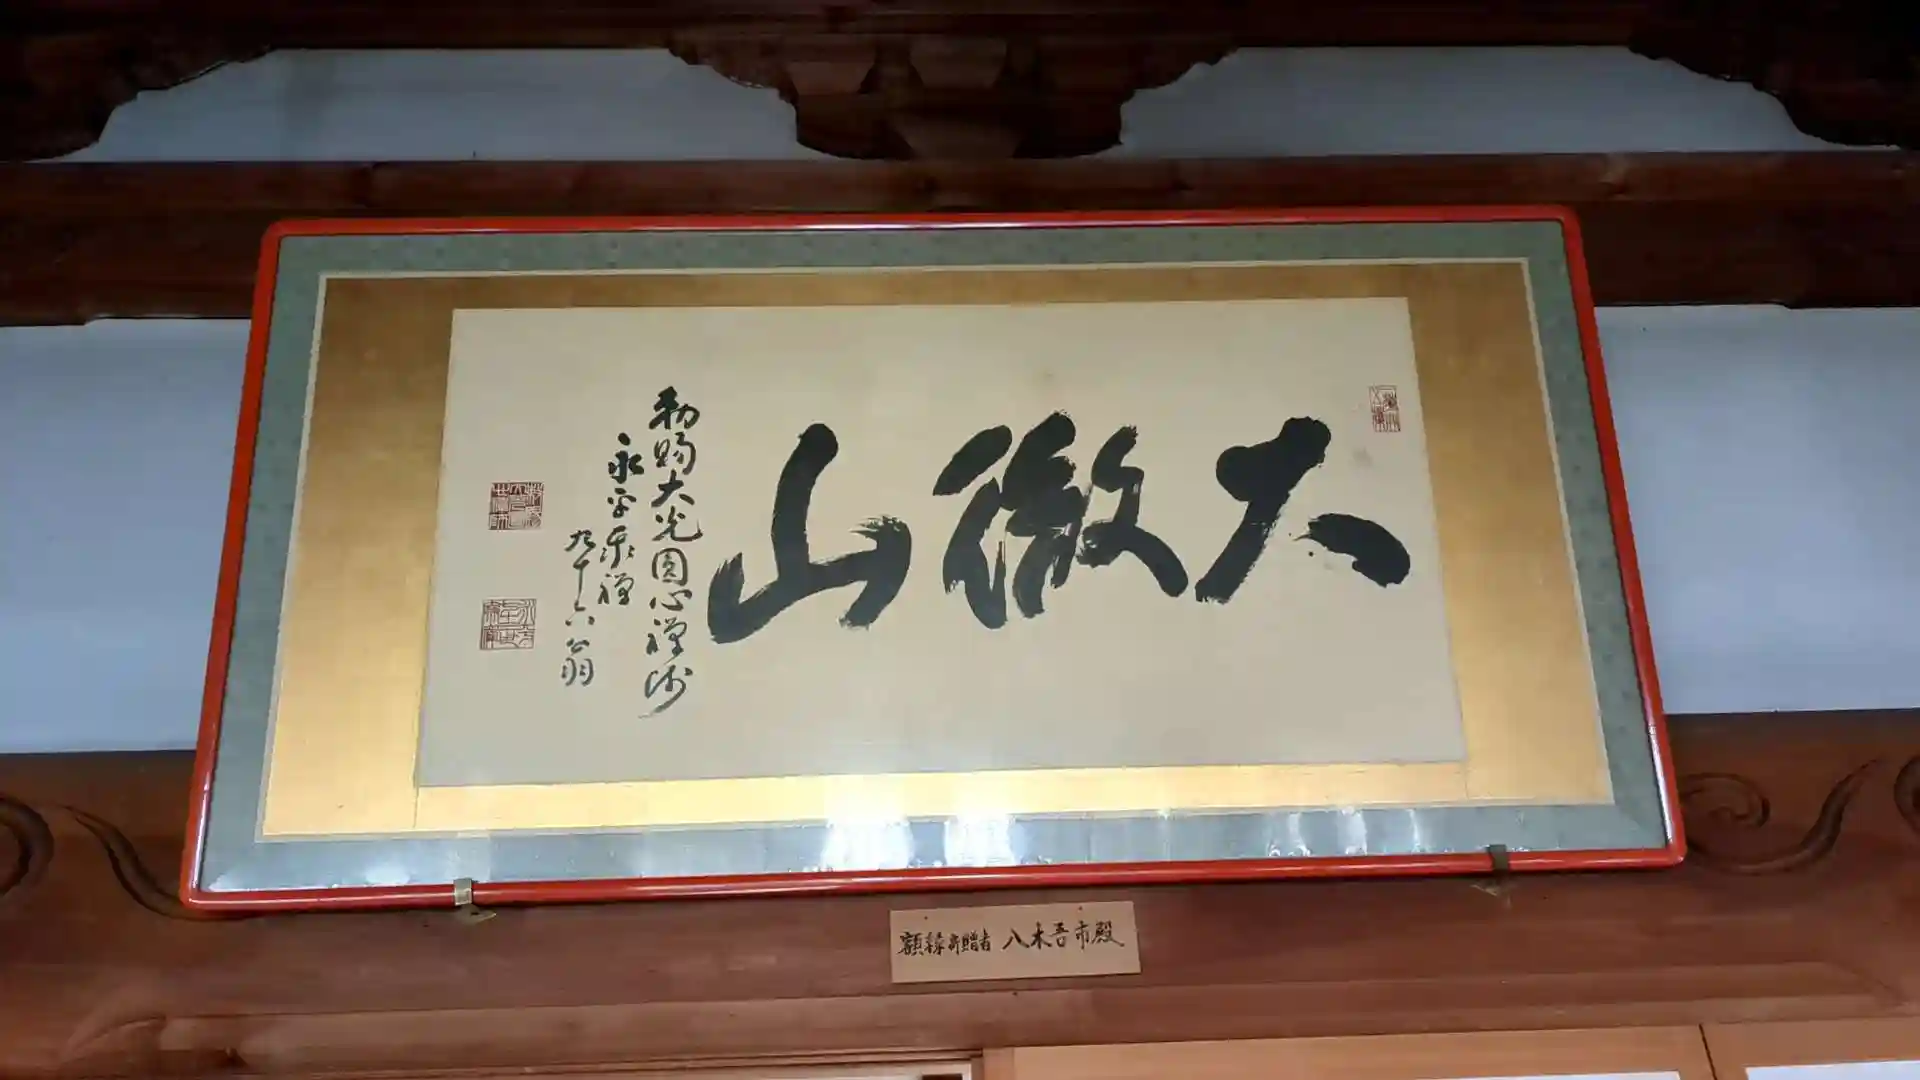 大徹山
勅賜大光圓心禅師
永平泰禅
九十六翁
額縁寄贈者 八木吾市殿